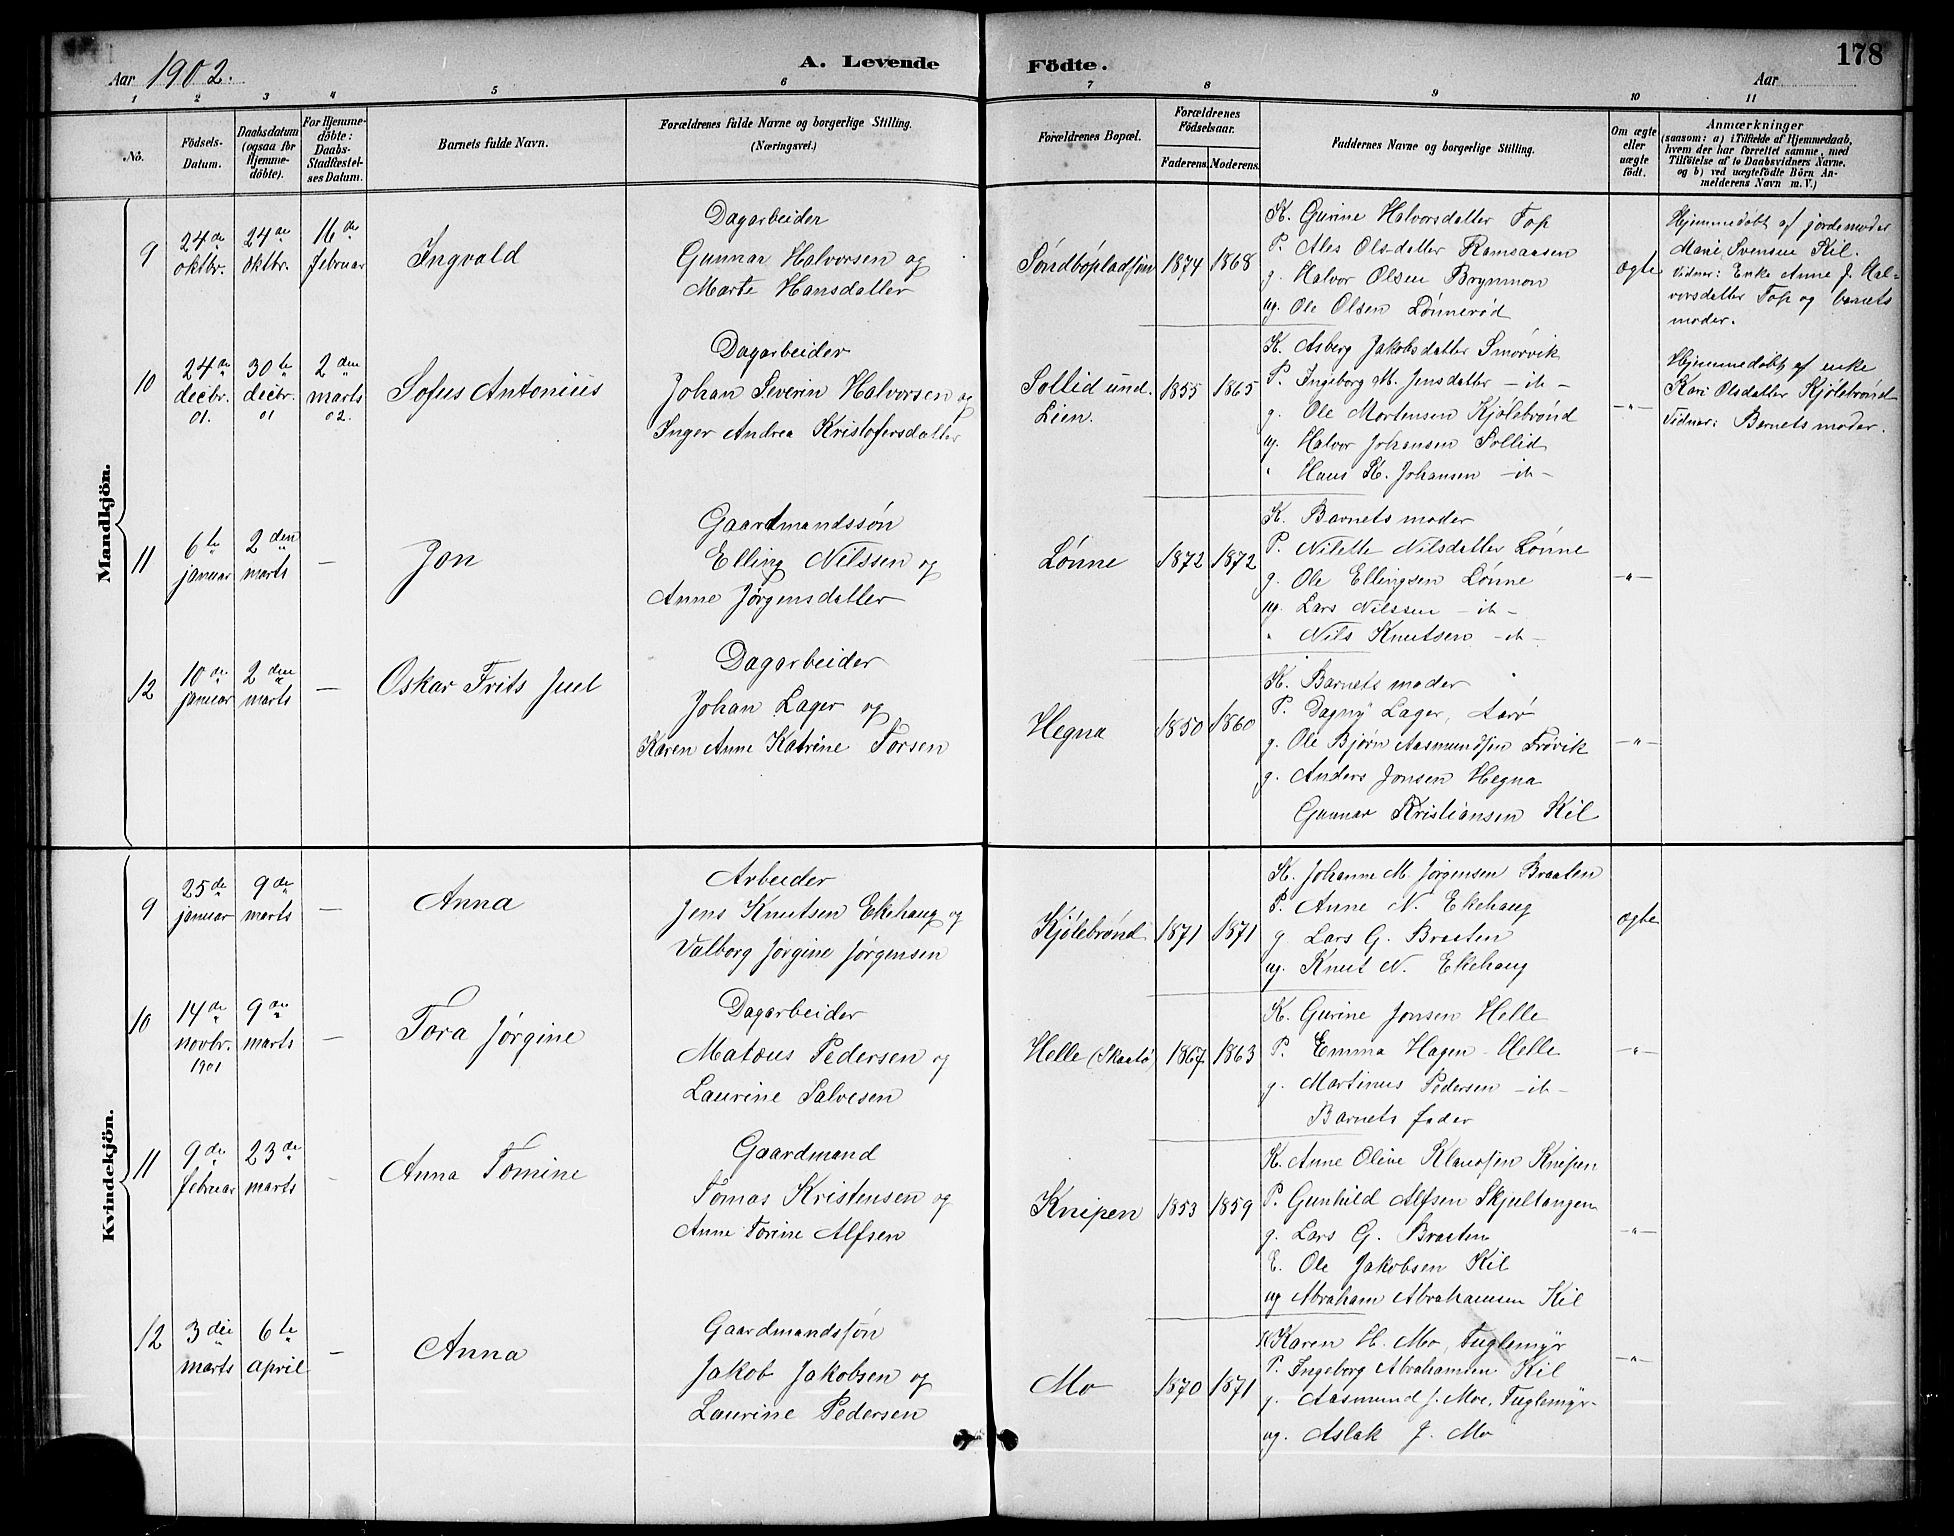 Aar 1902.
A. Levende
Födte.
Aar
178
1 2 3 4 5 6 7 8 9 10 11
No.
Födsels-
Datum.
Daabsdatum
(ogsaa for
Hjemme-
döbte).
For Hjemme-
döbte:
Daabs-
Stadfæstel-
ses Datum.
Barnets fulde Navn.
Forældrenes fulde Navne og borgerlige Stilling.
(Næringsvei.)
Forældrenes Bopæl.
Forældrenes
Födselsaar.
Faderens. Moderens.
Faddernes Navne og borgerlige Stilling.
Om ægte
eller
uægte
födt.
Anmærkninger
(saasom: a) i Tilfælde af Hjemmedaab,
hvem der har forrettet samme, med
Tilföielse af to Daabsvidners Navne,
og b) ved uægtefödte Börn An-
melderens Navn m. V.)
Mandkjön.
9
24de
oktbr.
24de
oktbr.
16de
februar
Ingvald
Dagarbeider
Gunnar Halvorsen og
Marte Hansdatter
Søndbøpladsen
1874
1868
K. Gurine Halvorsdatter Top
P. Ales Olsdatter Ramsaasen
g. Halvor Olsen Brynmon
ug. Ole Olsen Lønnerød
ægte
Hjemmedøbt af jordemoder
Marie Svensen Kil.
Vidner: Enke Anne J. Hal-
vorsdatter Top og barnets
moder.
10
24de
decbr.
01.
30te
decbr.
01
2den
marts
02.
Sofus Antonius
Dagarbeider
Johan Severin Halvorsen og
Inger Andrea Kristofersdatter
Sollid und.
Lien.
1855
1865
K. Asberg Jakobsdatter Smørvik
P. Ingeborg M. Jensdatter - it -
g. Ole Mortensen Kjølebrønd
ug. Halvor Johansen Sollid
" Hans K. Johansen - it -
- " -
Hjemmedøbt af enke
Kari Olsdatter Kjølebrønd
Vidner: Barnets moder.
11
6te
januar
2den
marts
-
Jon
Gaardmandssøn
Elling Nilssen og
Anne Jørgensdatter
Lønne
1872
1872
K. Barnets moder
P. Nilette Nilsdatter Lønne
g. Ole Ellingsen Lønne
ug. Lars Nilssen - it -
" Nils Knutsen - it -
- " -
12
10de
januar
2den
marts
-
Oskar Frits Juel
Dagarbeider
Johan Lager og
Karen Anne Katrine Torsen
Hegna
1850
1860
K. Barnets moder
P. Dagny Lager, Aarø
g. Ole Bjørn Aasmundsen Frøvik
g. Anders Jonsen Hegna
Gunnar Kristiansen Kil
- " -
Kvindekjön.
9
25de
januar
9de
marts
-
Anna
Arbeider
Jens Knutsen Ekehaug og
Valborg Jørgine Jørgensen
Kjølebrønd
1871
1871
K. Johanne M. Jørgensen Braaten
P. Anne N. Ekehaug
g Lars G. Braaten
ug. Knut N. Ekehaug
ægte
10
14de
novbr.
1901
9de
marts
-
Tora Jørgine
Dagarbeider
Mateus Pedersen og
Laurine Salvesen
Helle (Skaatø)
1867
1863
K. Gurine Jonsen Helle
P. Emma Hagen Helle
g. Martinus Pedersen - it -
Barnets fader
- " -
11
9de
februar
23de
marts
-
Anna Tomine
Gaardmand
Tomas Kristensen og
Anne Torine Alfsen
Knipen
1853
1859
K. Anne Oline Klausen Knipen
P. Gunhild Alfsen Skjultangen
g. Lars G. Braaten
E. Ole Jakobsen Kil
ug Abraham Abrahamsen Kil
- " -
12
3die
marts
6te
april
-
Anna
Gaardmandssøn
Jakob Jakobsen og
Laurine Pedersen
Mo
1870
1871
K Karen H. Mo, Fuglemyr
P. Ingeborg Abrahamsen Kil
g. Aasmund J. Moe, Fuglemyr
ug. Aslak J. Mo
- " -